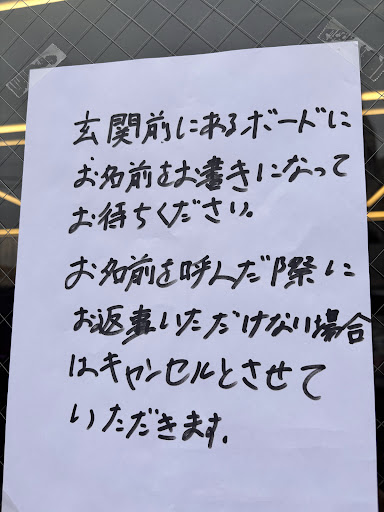 玄関前にあるボードに
お名前をお書きになって
お待ちください。
お名前を呼んだ際に
お返事いただけない場合
はキャンセルとさせて
いただきます.